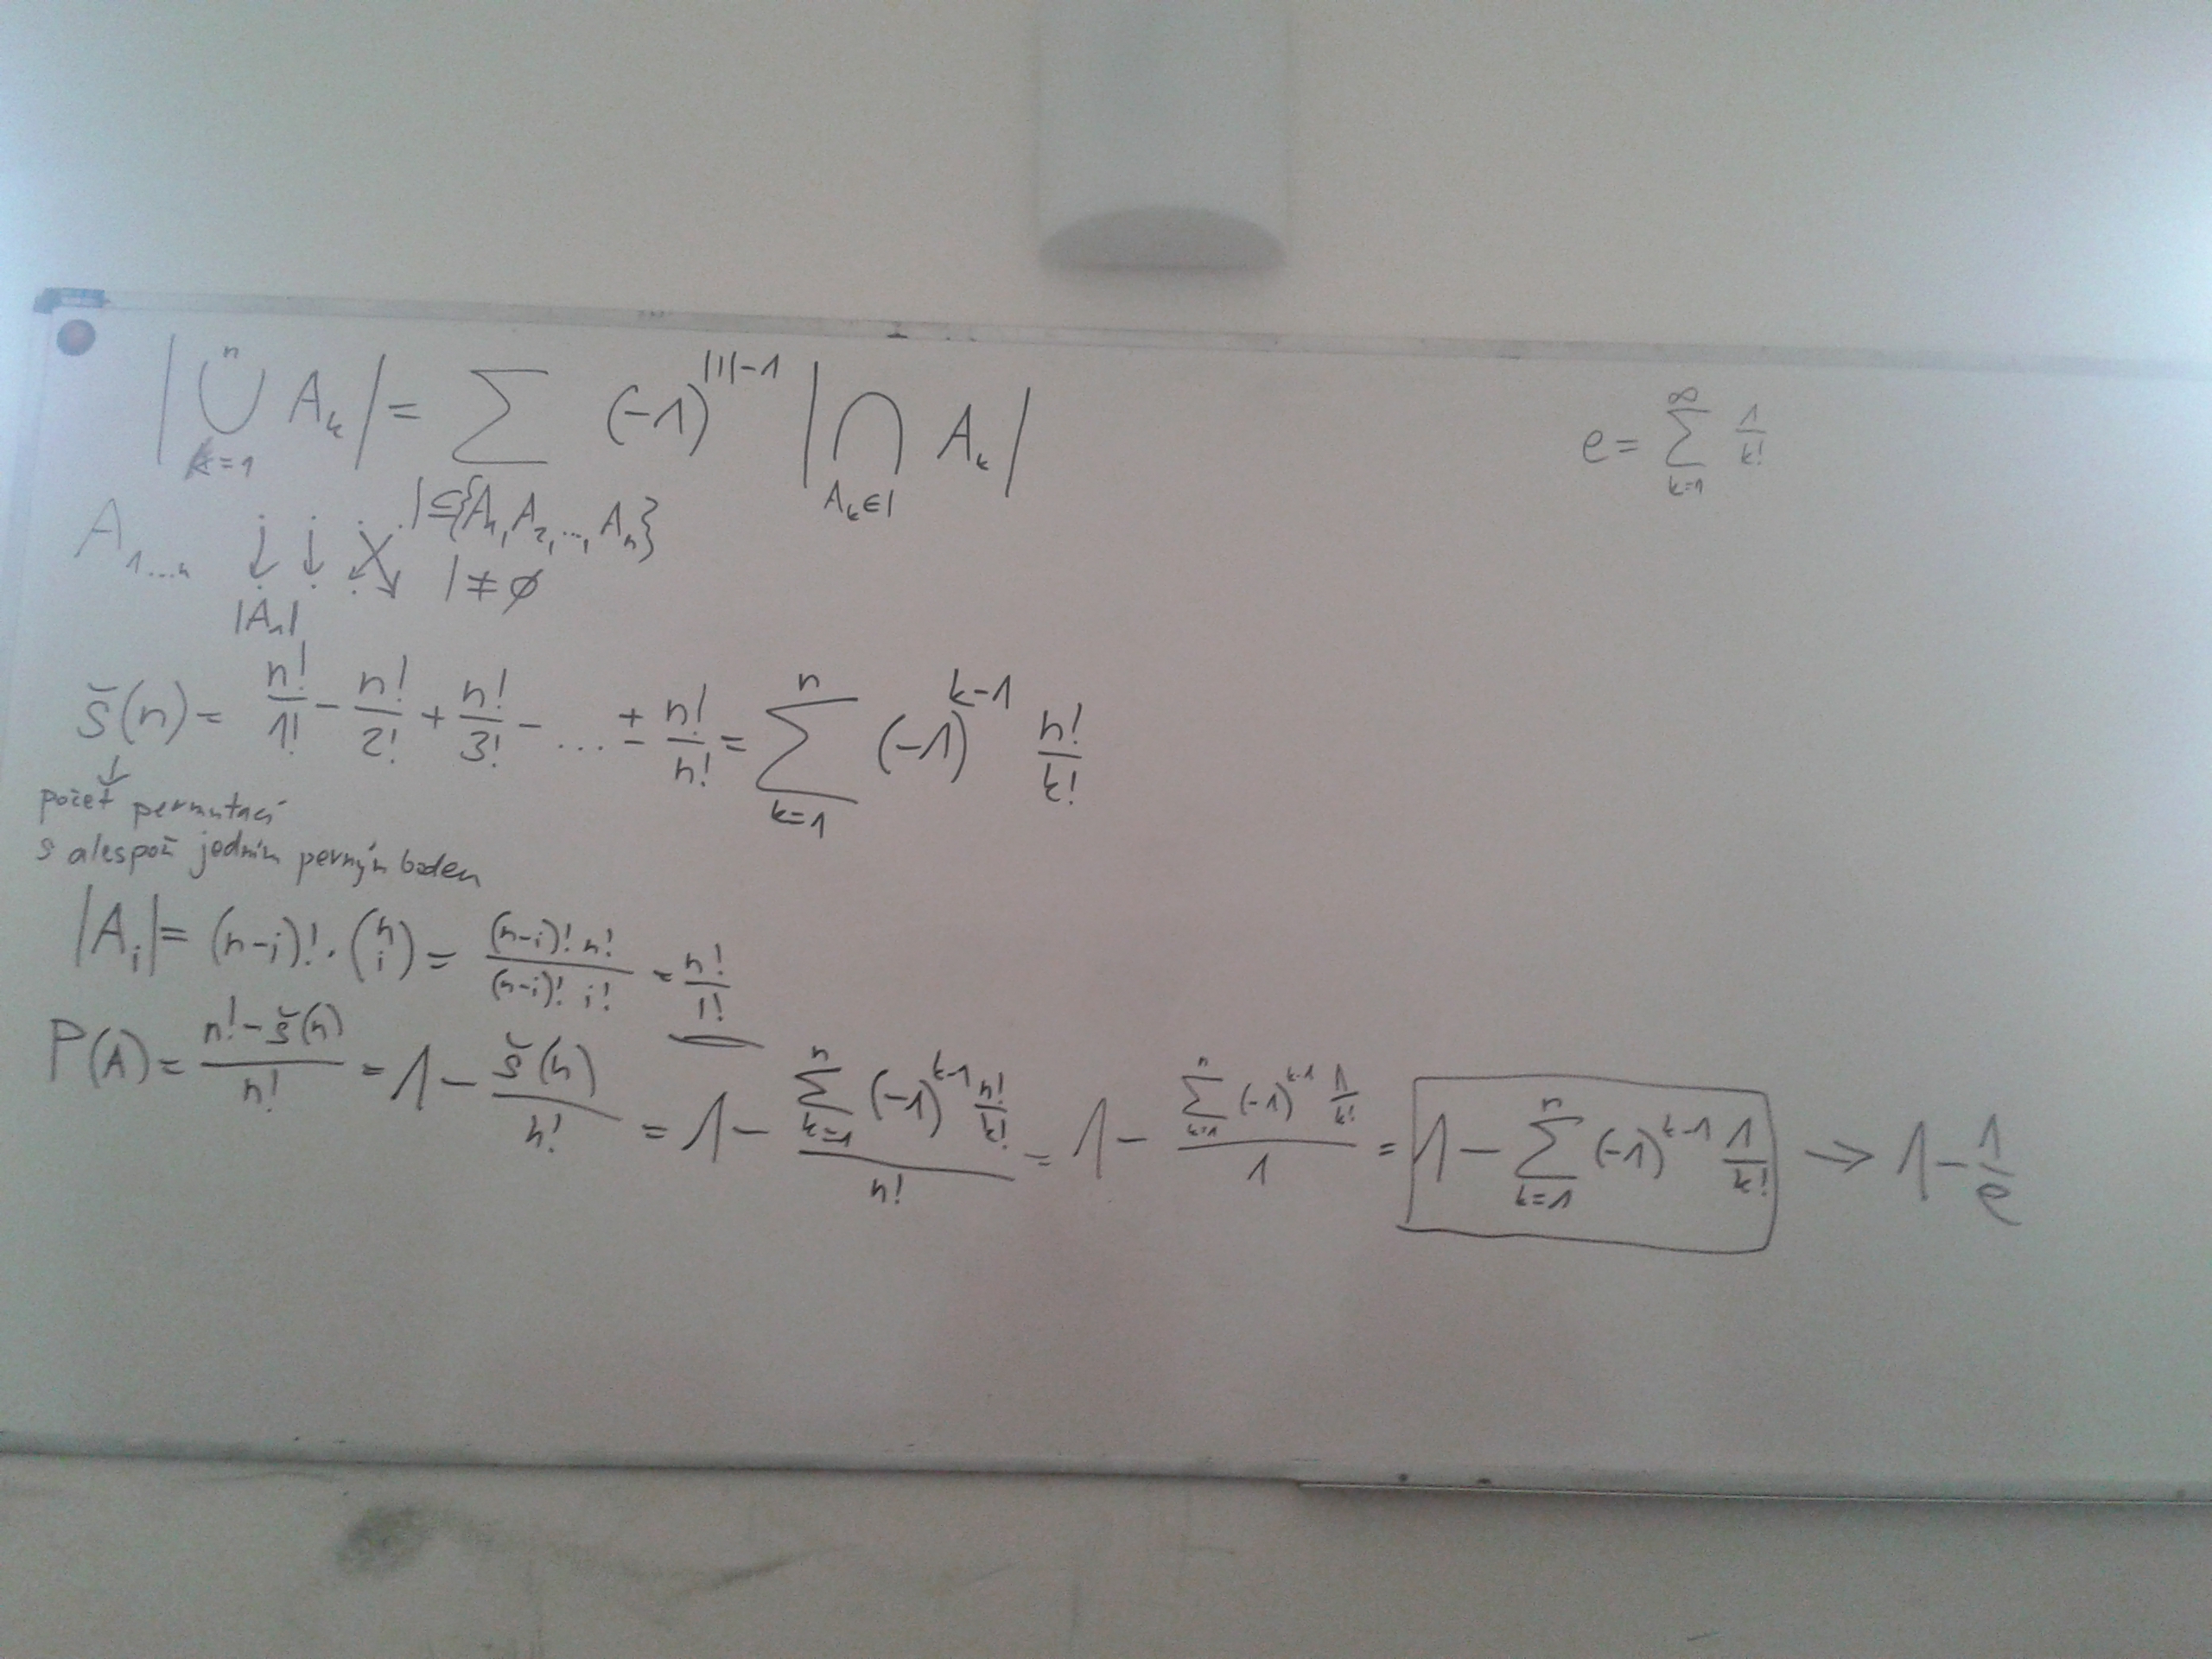 |⋃_{k=1}^{n} A_k| = ∑_{I⊆{A_1, A_2, ..., A_n}, I≠∅} (-1)^{|I|-1} |⋂_{A_k∈I} A_k|
e = ∑_{k=1}^{∞} 1/k!
A_{1...n}
|A_1|
š(n) = n!/1! - n!/2! + n!/3! - ... ± n!/n! = ∑_{k=1}^{n} (-1)^{k-1} n!/k!
↓
počet permutací
s alespoň jedním pevným bodem
|A_i| = (n-i)! · (n i) = (n-i)! n!/(n-i)! i! = n!/i!
P(A) = (n! - š(n))/n! = 1 - š(n)/n! = 1 - (∑_{k=1}^{n} (-1)^{k-1} n!/k!)/n! = 1 - (∑_{k=1}^{n} (-1)^{k-1} 1/k!)/1 = 1 - ∑_{k=1}^{n} (-1)^{k-1} 1/k! → 1 - 1/e